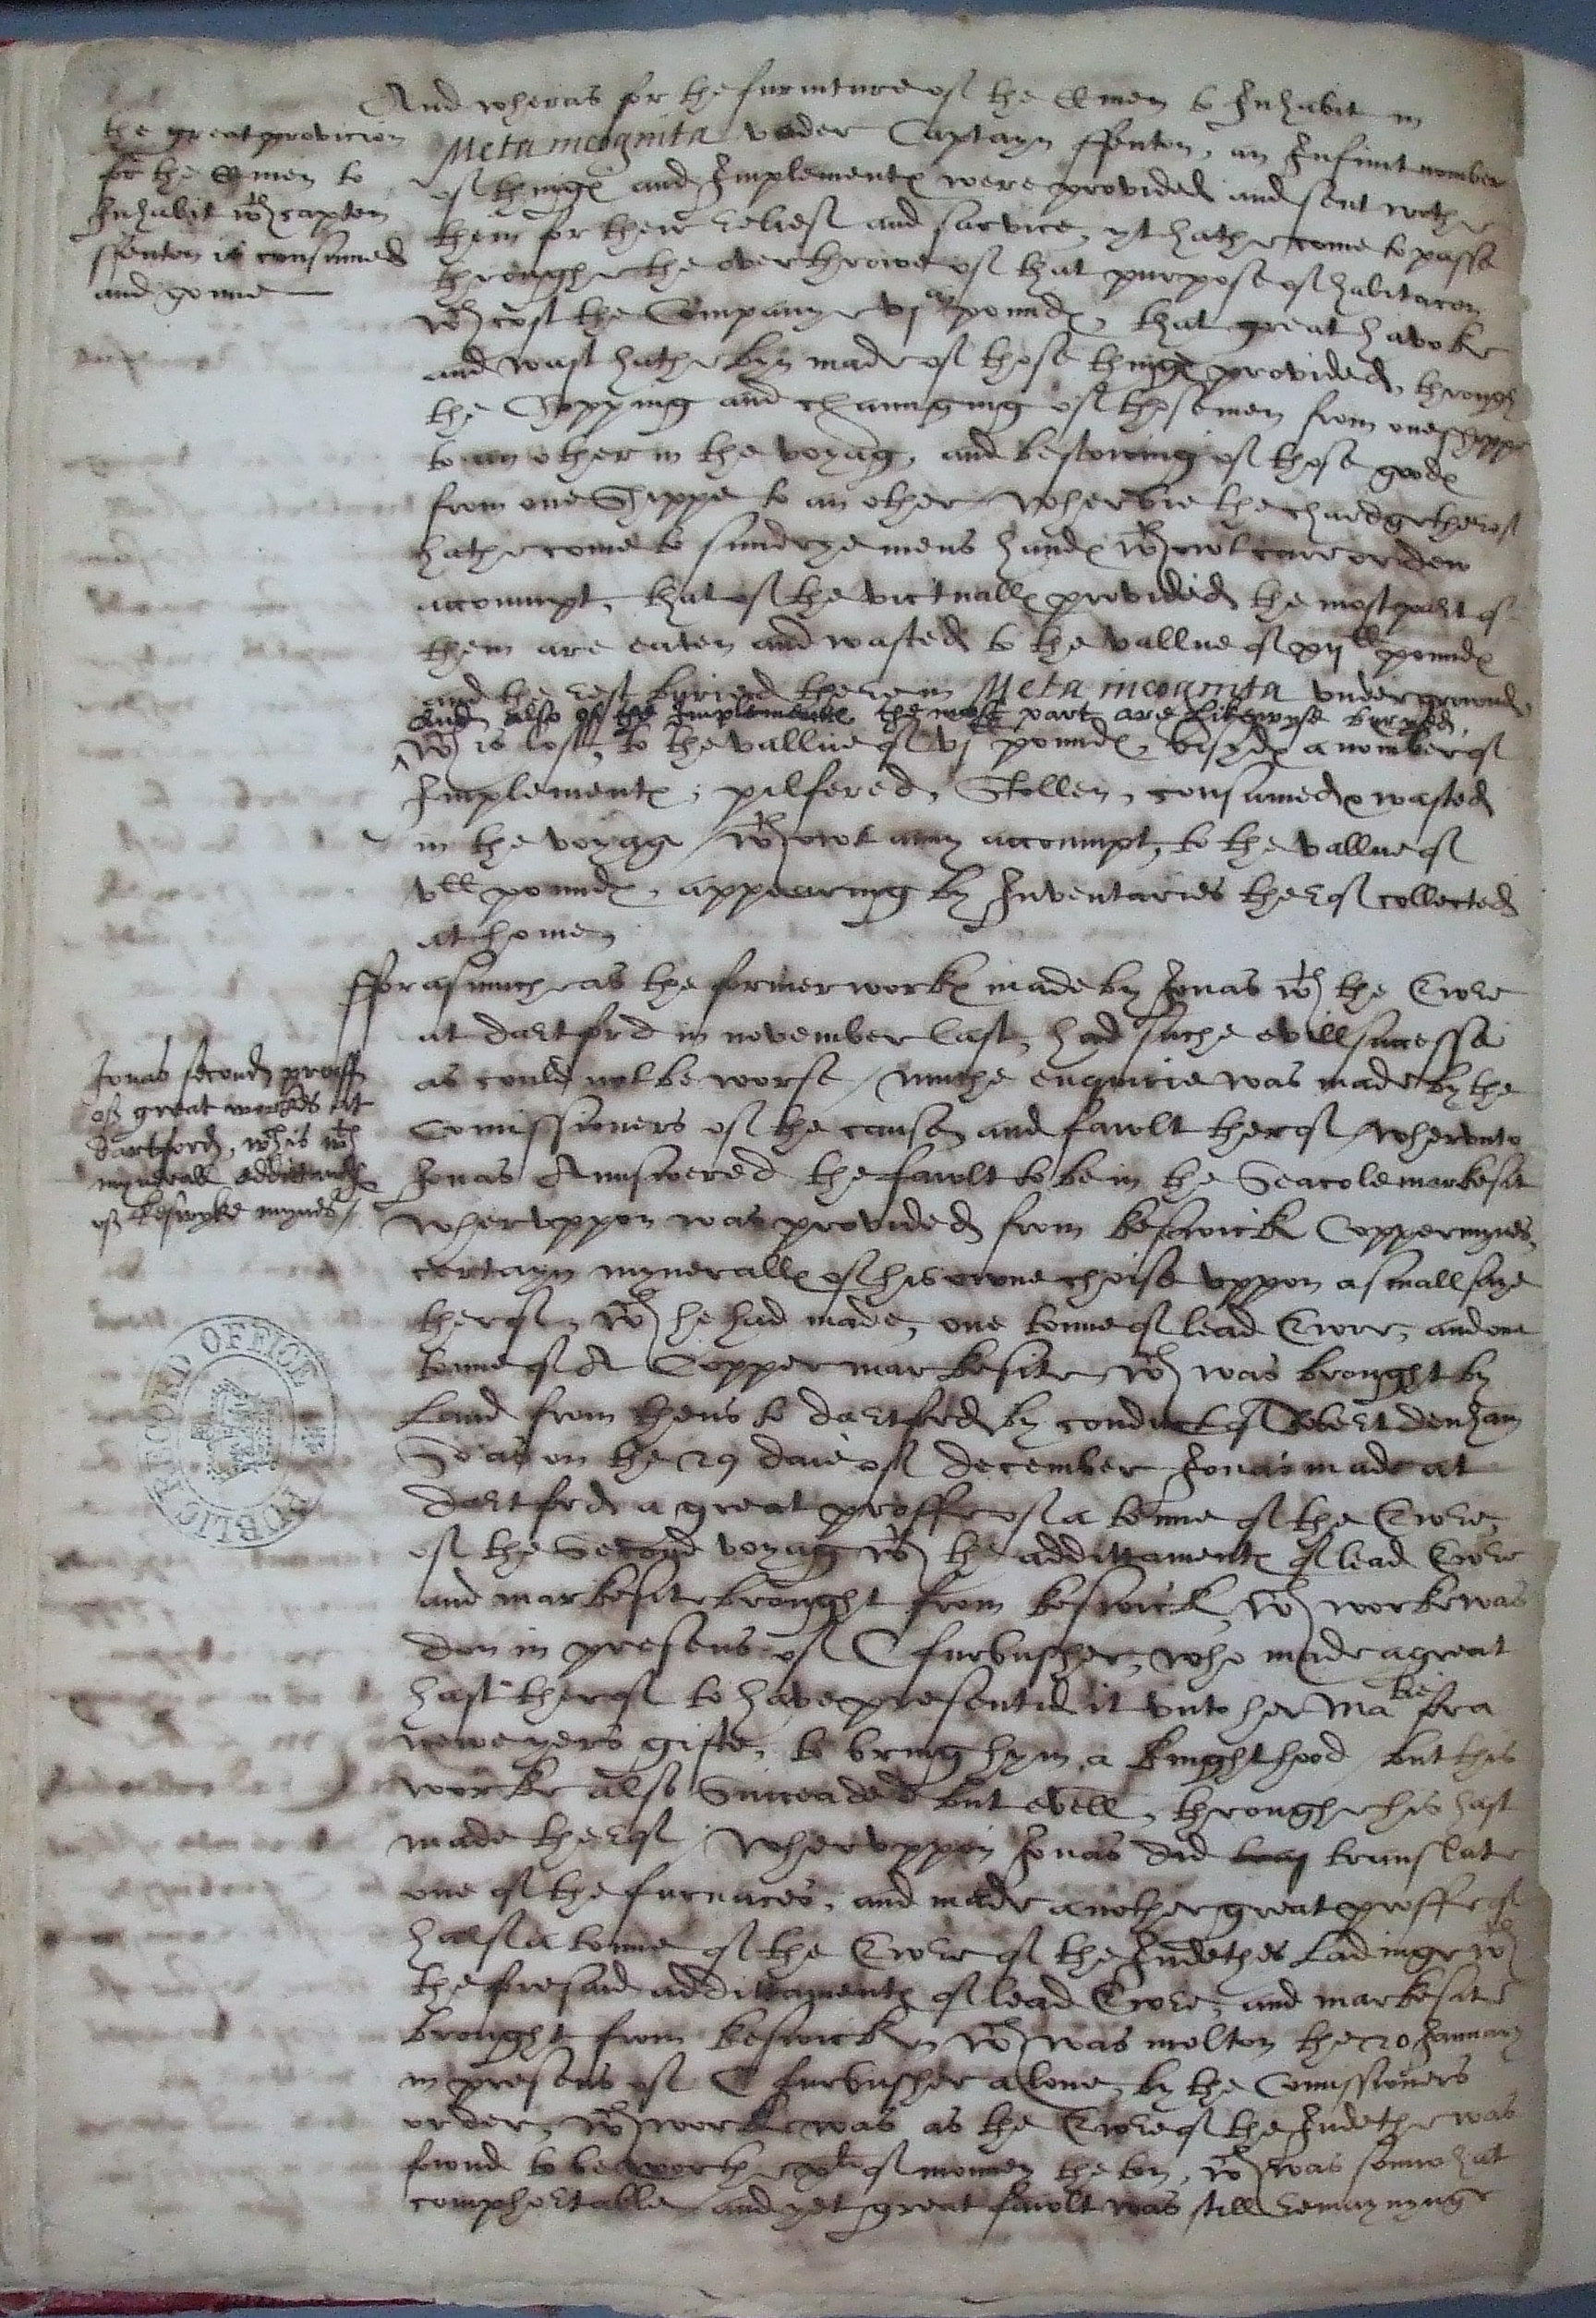 And wheras for the furniture of the C men to Inhabit in
Meta incognita vnder Captayn ffenton, an Infinit nomber
of things and Implements were provided and sent with
them for their relief and sarvice, yt hathe come to passe
throughe the overthrowe of that purpose of habitacon
wch cost the Company vjM pounds, that great havoke
and wast hathe byn made of those things provided, through
the Shipping and channging of those men from one shippe
to an other in the voyag, and bestowing of those goods
from one Shippe to an other wherbie the chardge therof
hathe come to sundrye mens hands wthowt care or dew
accompt, that of the victualls provided the most part of
them are eaten and wasted to the vallue of pounds
and the rest buried there in Meta incognita vndergrownd,
And also of the Implements the most part are likewyse buryed,
wch is lost, to the vallue of pounds, besyds a nomber of
Implements, pilfered, Stollen, consumed wasted
in the voyag wthowt anny accompt, to the vallue of
pounds, appearing by Inventaries therof collected
at home
the great provicion
for the C men to
Inhabit wth capten
ffenton is consumed
and gonne
fforasmuche as the former works made by Jonas wth the Ewre
at dartford in november last, had suche evill successe
as could not be worse / muche enquirie was made by the
Comissioners of the cause and fawlt therof / whervnto
Jonas Annswered the fawlt to be in the Seacole markesit
whervppon was provided from keswick Coppermynes
certayn myneralls of his owne choise vppon a small saye
therof wch he had made, one tonne of lead Ewre, and one
tonne of A Copper markesite wch was brought by
Land from thens to dartford by conduct of Robert denham
So as on the 29 daie of december Jonas made at
dartford a great proffe of a tonne of the Ewre,
of the Second voyag wth the addittaments of lead Ewre
and markesite brought from keswick, wch worke was
don in presens of C furbusher, who made a great
hast therof to have presentid it vnto her Matie for a
neweyers gifte, to bring hym a knight hood / but this
worke also Succeaded but evell, throughe his hast
made therof / Whervppon Jonas did translate
one of the furnaces, and made another great proffe of
half a tonne of the Ewre of the Judethes Ladinge wth
the foresaid addittaments of lead Ewre, and markesite
brought from keswick wch was molton the 20 January
in presens of C furbusher alone, by the Comissioners
order, wch worke was as the Ewre of the Judethe was
fownd to be worth of monney the ton, wch was somwhat
comphortable / and yet great fawlt was still remayninge
Jonas second proffe
of great workes at
Dartford, wch is wth
mynerall addittaments
of keswyke mynes /
PUBLIC RECORD OFFICE